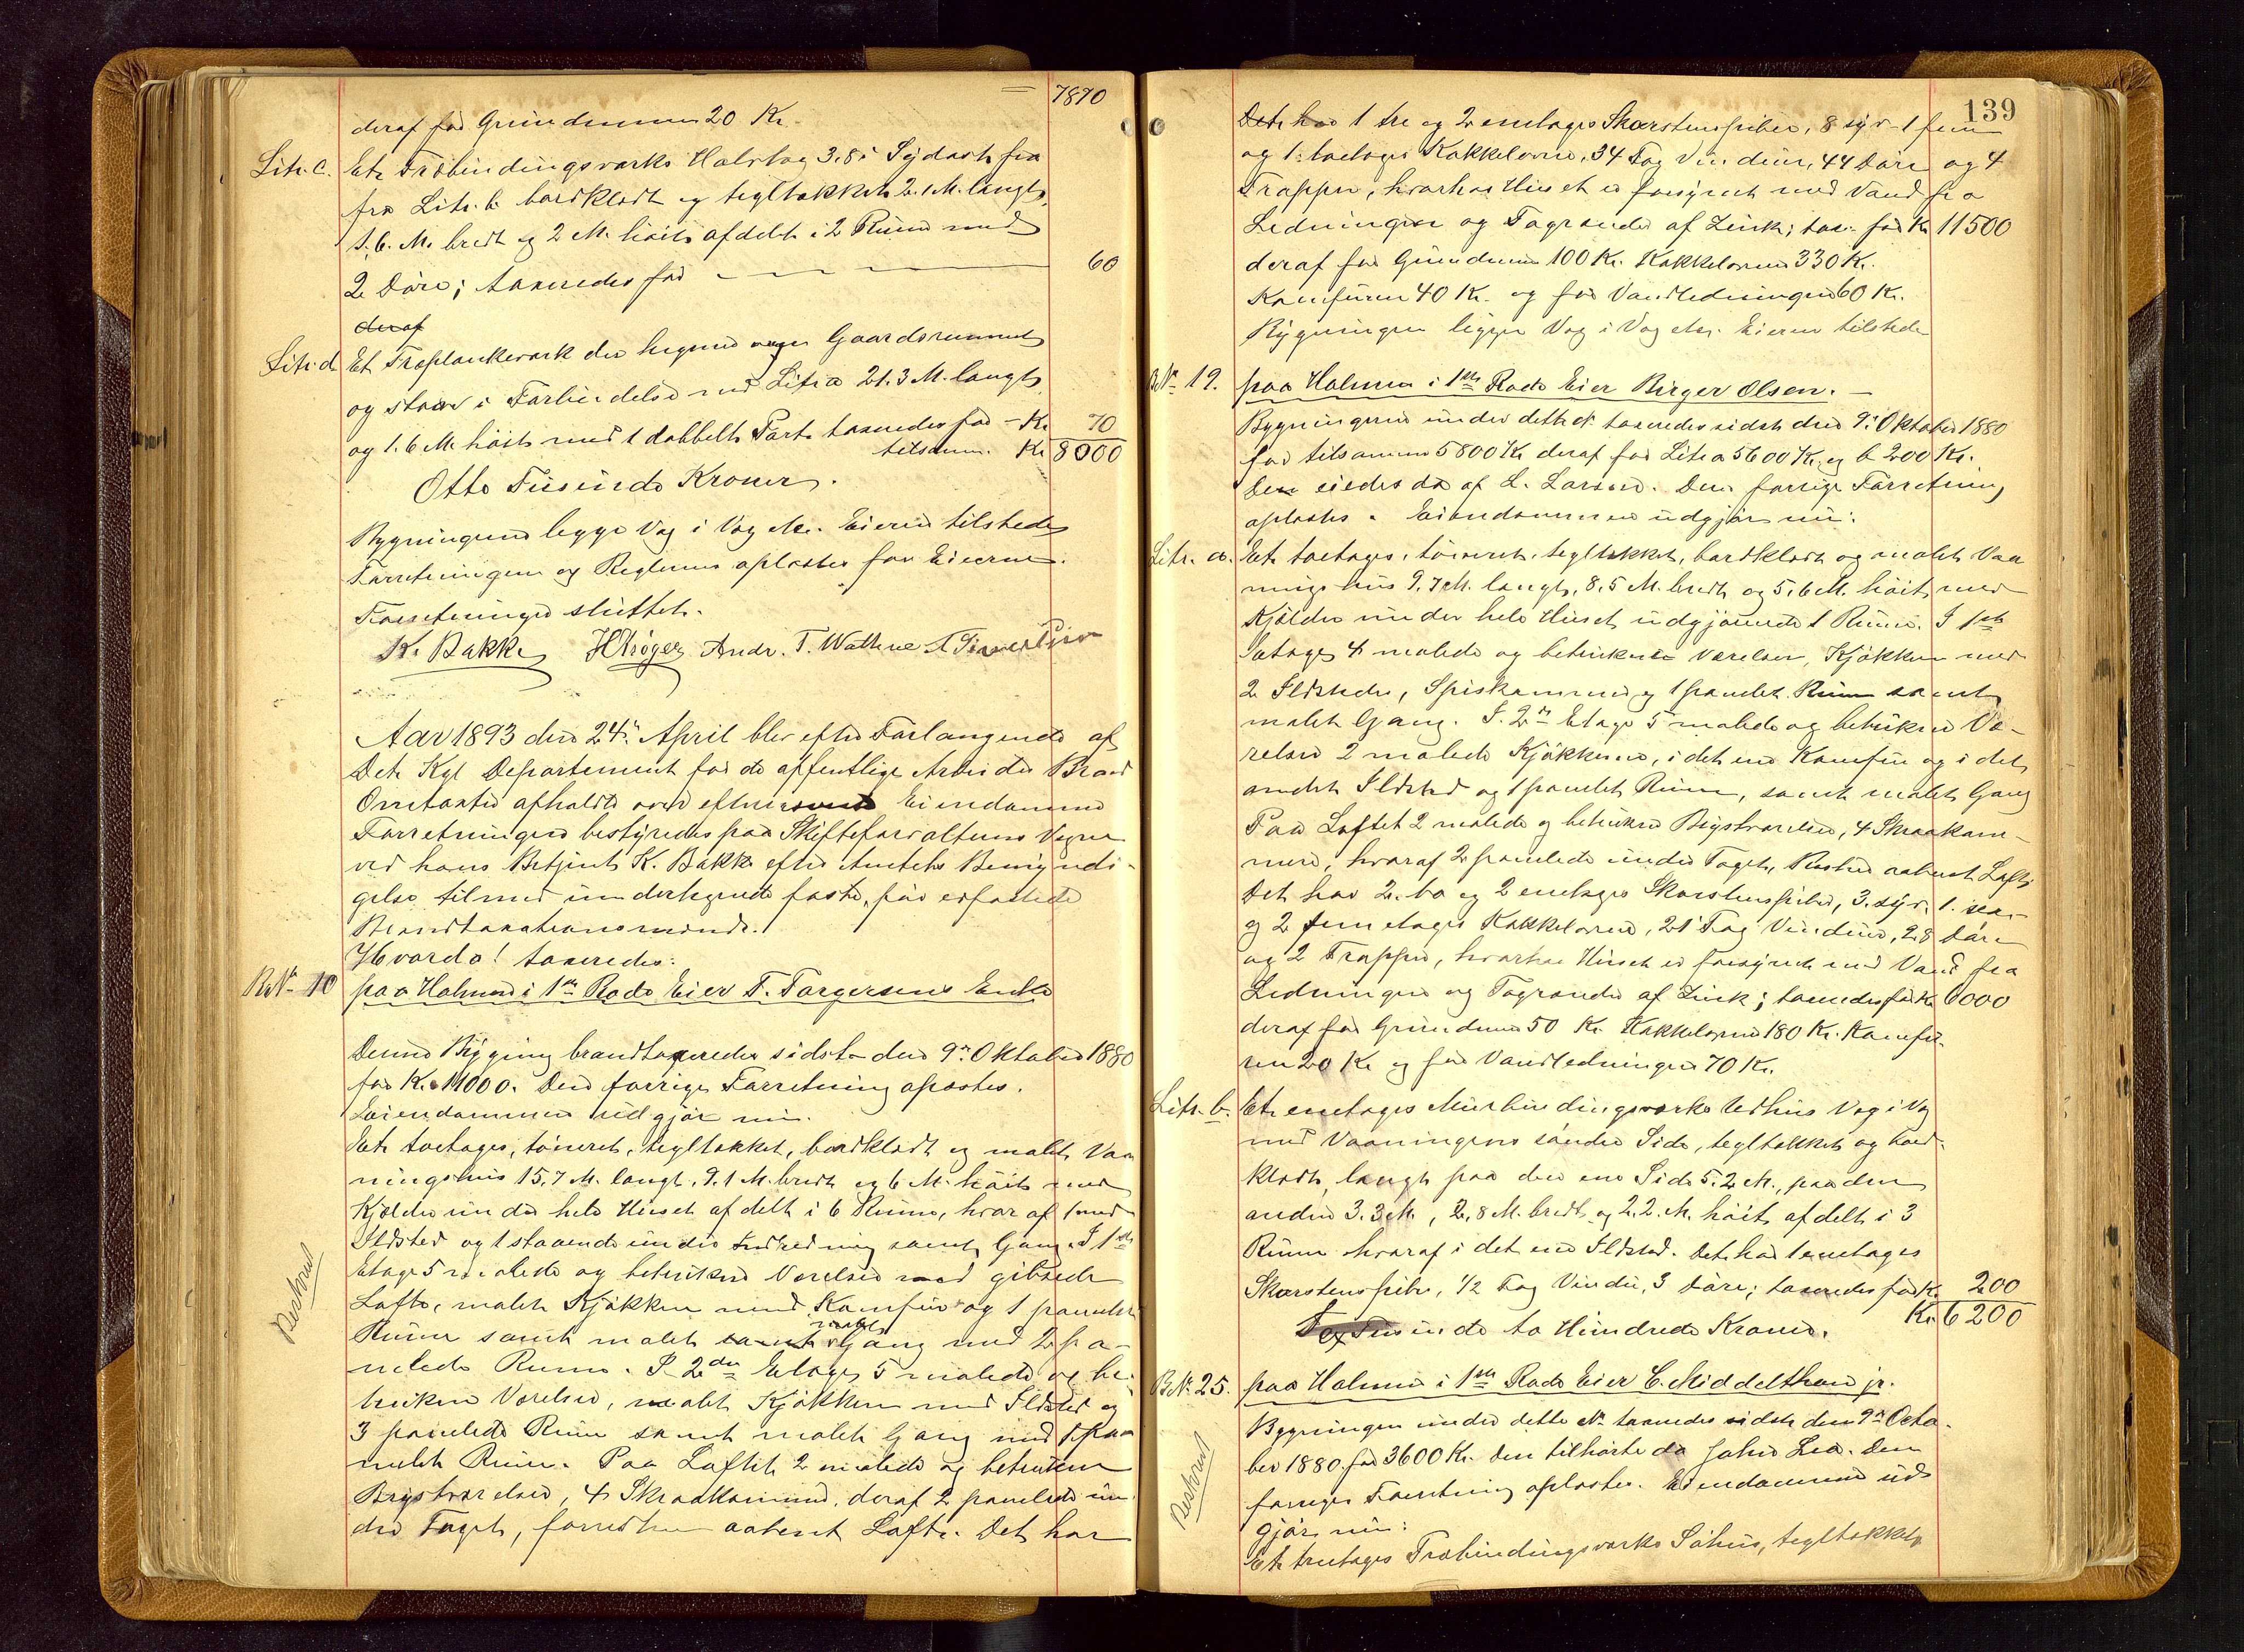 7870
deraf for Grundmuren 20 Kr.
Litr. c. Et Træbindingsværks Halvtag 3.8 i Sydost fra
fra Litr. b bordklædt og tegltækket 2.1 M. langt,
1.6. M. bredt og 2 M. höit afdelt i 2 Rum med
2 Döre; taxeredes for 60
deraf
Litr. d Et Træplankeværk der hegner Gaardsrummet
og staar i Forbindelse med Litr a 21.3 M. langt
og 1.6 M. höit med 1 dobbelt Port taxeredes for - Kr. 70
tilsamm. Kr 8000
Otte Tusinde Kroner.
Bygningerne ligge Vag i Vag etc. Eieren tilstede
Forretningen og Reglerne oplæstes for Eieren.
Forretningen sluttet.
K. Bakke H Kröger Andr. T. Wathne
Aar 1893 den 24. April blev efter Forlangende af
Det Kgl Departement for de offentlige Arbeider Brand
Omtaxter afholdt over efternævnte Eiendomme
Forretningen bestyredes paa Skifteforvalterens Vegne
ved hans Betjent K. Bakke efter Amtets Bemyndi-
gelse tilmed undertegnede faste, for edfæstede
Brandtaxationsmænd.
Hvorda! taxeredes:
B.No. 10 paa Holmen i 1ste Rode Eier T. Torgersens Enke
Denne Bygning brandtaxeredes sidst den 9. Oktober 1880
for Kr. 11000. Den forrige Forretning oplæstes.
Eiendommen udgjör nu.
Et toetages, tömret, tegltækket, bordklædt og malet Vaa
ningshus 15,7 M. langt, 9.1 M. bredt og 6 M. höit med
Kjælder under hele Huset afdelt i 6 Rum, hvoraf 1 med
Ildsted og 1 staaende under Indredning samt Gang. I 1ste
Etage 5 malede og betrukne Værelser med gibsede
Lofte, malet Kjökken med Komfur og 1 panelet
Rum samt malet samt malet Gang med 2 pa-
nelede Rum. I 2den Etage 5 malede og be-
trukne Værelser, malet Kjökken med Ildsted og
3 panelede Rum samt malet Gang med 1 paa
nelet Rum. Paa Loftet 2 malede og betrukne
Brystværelser, 4 Skraakammer, deraf 2 panelede un
der Taget, forresten aabent Loft. Det har
Beskrevet
139
Det har 1 tre og 2 enetages Skorstenspiber, 8 syv- 1 fem
og 1 toetages Kakkelovne, 34 Fag Vinduer, 44 Döre og 4
Trapper, hvorhos Huset er forsynet med Vand fra
Ledningen og Tagrender af Zink; tax. for Kr 11500
deraf for Grundmur 100 Kr. Kakkelovne 330 Kr.
Komfuren 40 Kr. og for Vandledningen 60 Kr.
Bygningen ligger Vag i Vag etc. Eieren tilstede
B.No. 19. paa Holmen i 1ste Rode Eier Birger Olsen.
Bygningerne under dette No taxeredes sidst den 9. Oktober 1880
for tilsammen 5800 Kr deraf for Litr a 5600 Kr. og b 200 Kr.
Den eiedes da af L. Larsen. Den forrige Forretning
oplæstes. Eiendommen udgjör nu:
Litr. a. Et toetages, tömret, tegltækket, bordklædt og malet Vaa
ningshus 9.7 M. langt, 8,5 M. bredt og 5,6 M. höit med
Kjælder under hele Huset udgjörende 1 Rum. I 1ste
Etage 4 malede og betrukne Værelser, Kjökken med
2 Ildsteder, Spiskammer og 1 panelet Rum samt
malet Gang. I 2den Etage 5 malede og betrukne Væ-
relser 2 malede Kjökkener, i det ene Komfur og i det
andet Ildsted og 1 panelet Rum, samt malet Gang
Paa Loftet 2 malede og betrukne Brystværelser, 4 Skraakam-
mere, hvoraf 2 panelede under Taget, Resten aabent Loft
Det har 2 to og 2 enetages Skorstenspiber, 3 syv. 1 sex-
og 2 femetages Kakkelovne, 21 Fag Vinduer, 28 Döre
og 2 Trapper, hvorhos Huset er forsynet med Vand fra
Ledningen og Tagrender af Zink; taxeredes for Kr 6000
deraf for Grundmur 50 Kr. Kakkelovne 180 Kr. Komfu-
ren 20 Kr og for Vandledningen 70 Kr.
Litr. b. Et enetages Murbindingsværks Udhus Vag i Vag
med Vaaningens söndre Side, tegltækket og bord-
klædt, langt paa den ene Side 5.2 M., paa den
anden 3.3 M., 2,8 M. bredt og 2.2. M. höit, afdelt i 3
Rum hvoraf i det ene Ildsted. Det har 1 enetages
Skorstenspibe, 1/2 Fag Vindu, 3 Döre; taxeredes for Kr. 200
Kr. 6200
Sex Tusinde to Hundrede Kroner.
B.No. 25. paa Holmen i 1ste Rode Eier C. Middelthon jr.
Bygningen under dette No taxeredes sidst den 9de Octo-
ber 1880 for 3600 Kr. Den tilhörte da John Lea. Den
forrige Forretning oplæstes. Eiendommen ud
gjör nu:
Et treetages Træbindingsværks Söhus, tegltækket,
Beskrevet